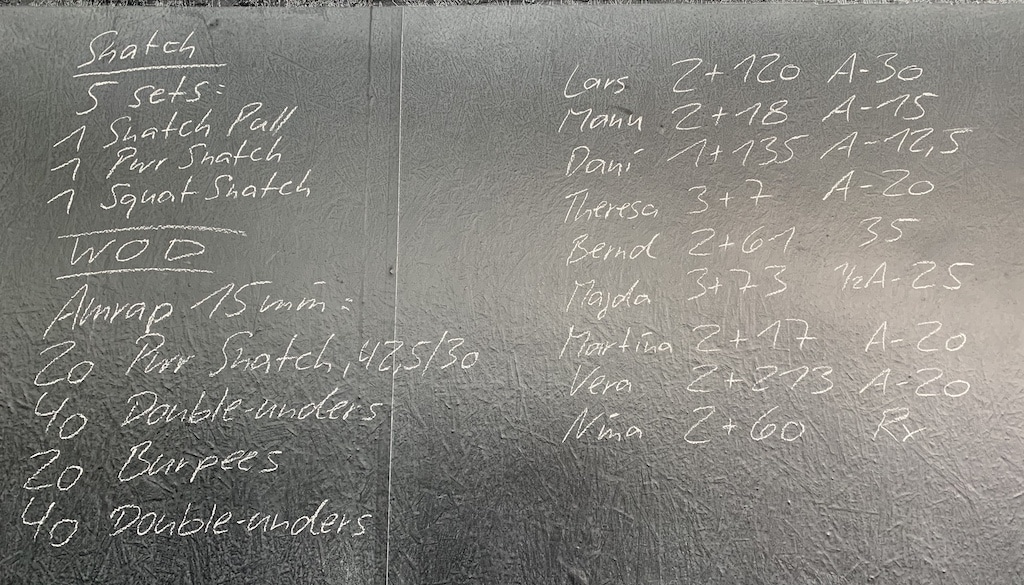 Snatch
5 sets:
1 Snatch Pull
1 Pwr Snatch
1 Squat Snatch
WOD
Amrap 15 min:
20 Pwr Snatch, 42,5/30
40 Double-unders
20 Burpees
40 Double-unders
Lars 2+120 A-30
Manu 2+18 A-15
Dani 1+135 A-12,5
Theresa 3+7 A-20
Bernd 2+61 35
Majda 3+73 1/2A-25
Martina 2+17 A-20
Vera 2+213 A-20
Nina 2+60 Rx